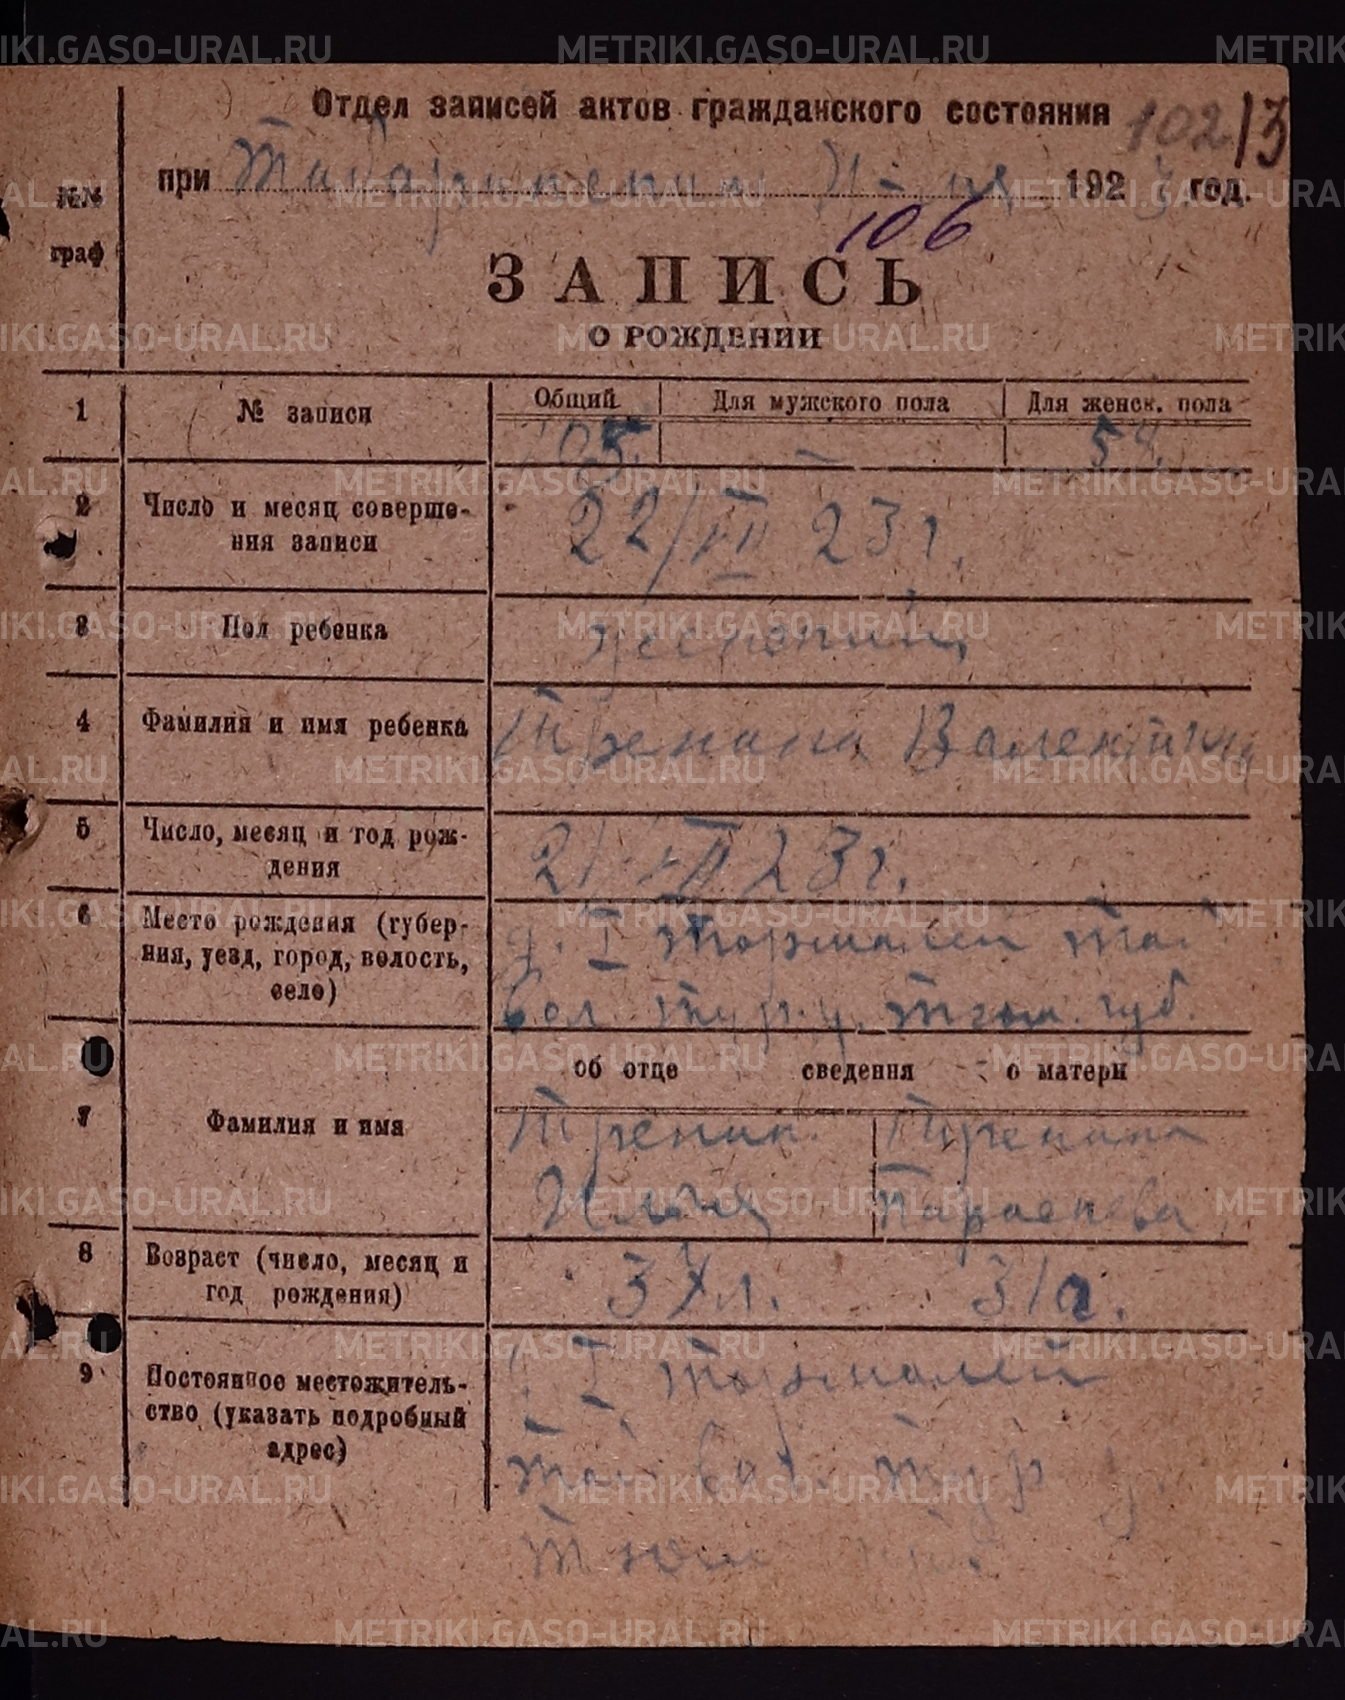 METRIKI.GASO-URAL.RU
Отдел записей актов гражданского состояния
102 13
при Табаринском 1923 год.
№№ граф
106
ЗАПИСЬ
О РОЖДЕНИИ
1 № записи Общий Для мужского пола Для женск. пола
105. — 54.
2 Число и месяц соверше-
ния записи
22/III 23 г.
3 Пол ребенка женский
4 Фамилия и имя ребенка Тренина Валентина
5 Число, месяц и год рож-
дения
21 III 23 г.
6 Место рождения (губер-
ния, уезд, город, волость,
село)
д. I Тормалей Таб.
вол. Тур. у. Тюм. губ.
об отце сведения о матери
7 Фамилия и имя
Тренин Тренина
Илья
8 Возраст (число, месяц и
год рождения)
31 л.
9 Постоянное местожитель-
ство (указать подробный
адрес)
I Тормалей
Таб. вол. Тур. у.
Тюм